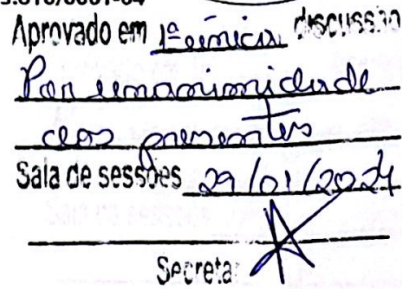 Aprovado em 1ª única discussão
Por unanimidade
dos presentes
Sala de sessões 29/01/2024
Secreta